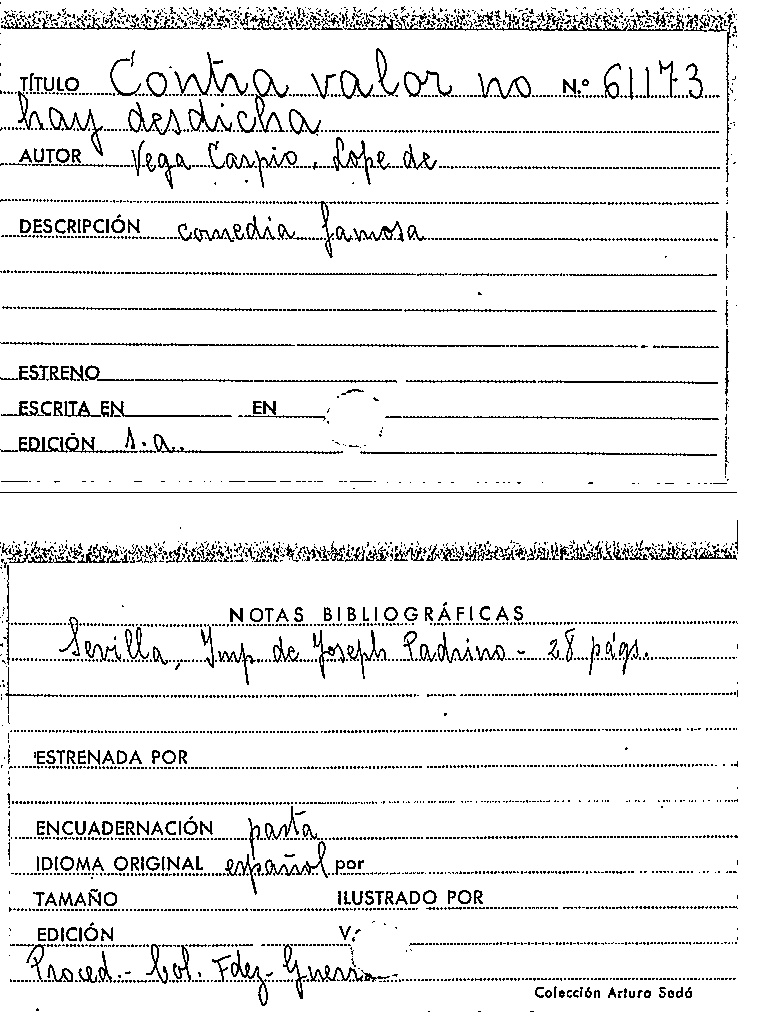 TÍTULO Contra valor no N.º 61173
hay desdicha
AUTOR Vega Carpio, Lope de
DESCRIPCIÓN comedia famosa
ESTRENO
ESCRITA EN EN
EDICIÓN s.a.
NOTAS BIBLIOGRÁFICAS
Sevilla, Imp. de Joseph Padrino - 28 págs.
ESTRENADA POR
ENCUADERNACIÓN pasta
IDIOMA ORIGINAL español por
TAMAÑO ILUSTRADO POR
EDICIÓN V.
Proced.- Col. Fdez-Guerra
Colección Arturo Sedó